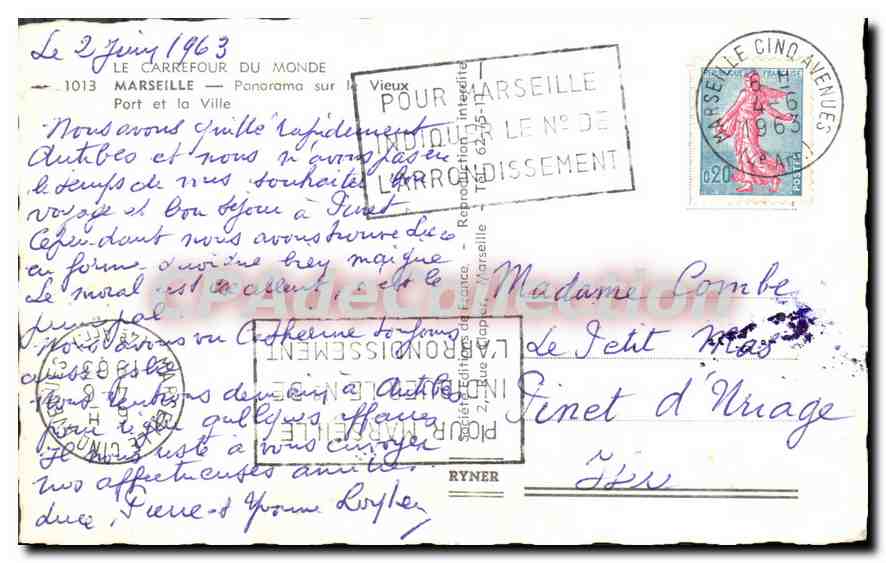 Le 2 Juin 1963
LE CARREFOUR DU MONDE
1013 MARSEILLE — Panorama sur le Vieux
Port et la Ville
Nous avons quitté rapidement
Antibes et nous n'avons pas eu
le temps de vous souhaiter bon
voyage et bon séjour à Pinet.
Cependant nous avons trouvé
en forme quoique très maigre
Le moral est excellent, c'est le
principal.
Nous avons vu Catherine toujours
aussi
Nous rentrons demain à Antibes
pour régler quelques affaires
Il nous reste à vous envoyer
nos affectueuses amitiés
Pierre et Yvonne
POUR MARSEILLE
INDIQUER LE N° DE
L'ARRONDISSEMENT
MARSEILLE CINQ AVENUES
4-6
1963
REPUBLIQUE FRANÇAISE
0,20
POSTES
Société Editions de France - Reproduction interdite
2, Rue Crapier, Marseille - Tél. 62-05-12
POUR MARSEILLE
INDIQUER LE N° DE
L'ARRONDISSEMENT
RYNER
Madame Combe
Le Petit Mas
Pinet d'Uriage
CPAdeCollection